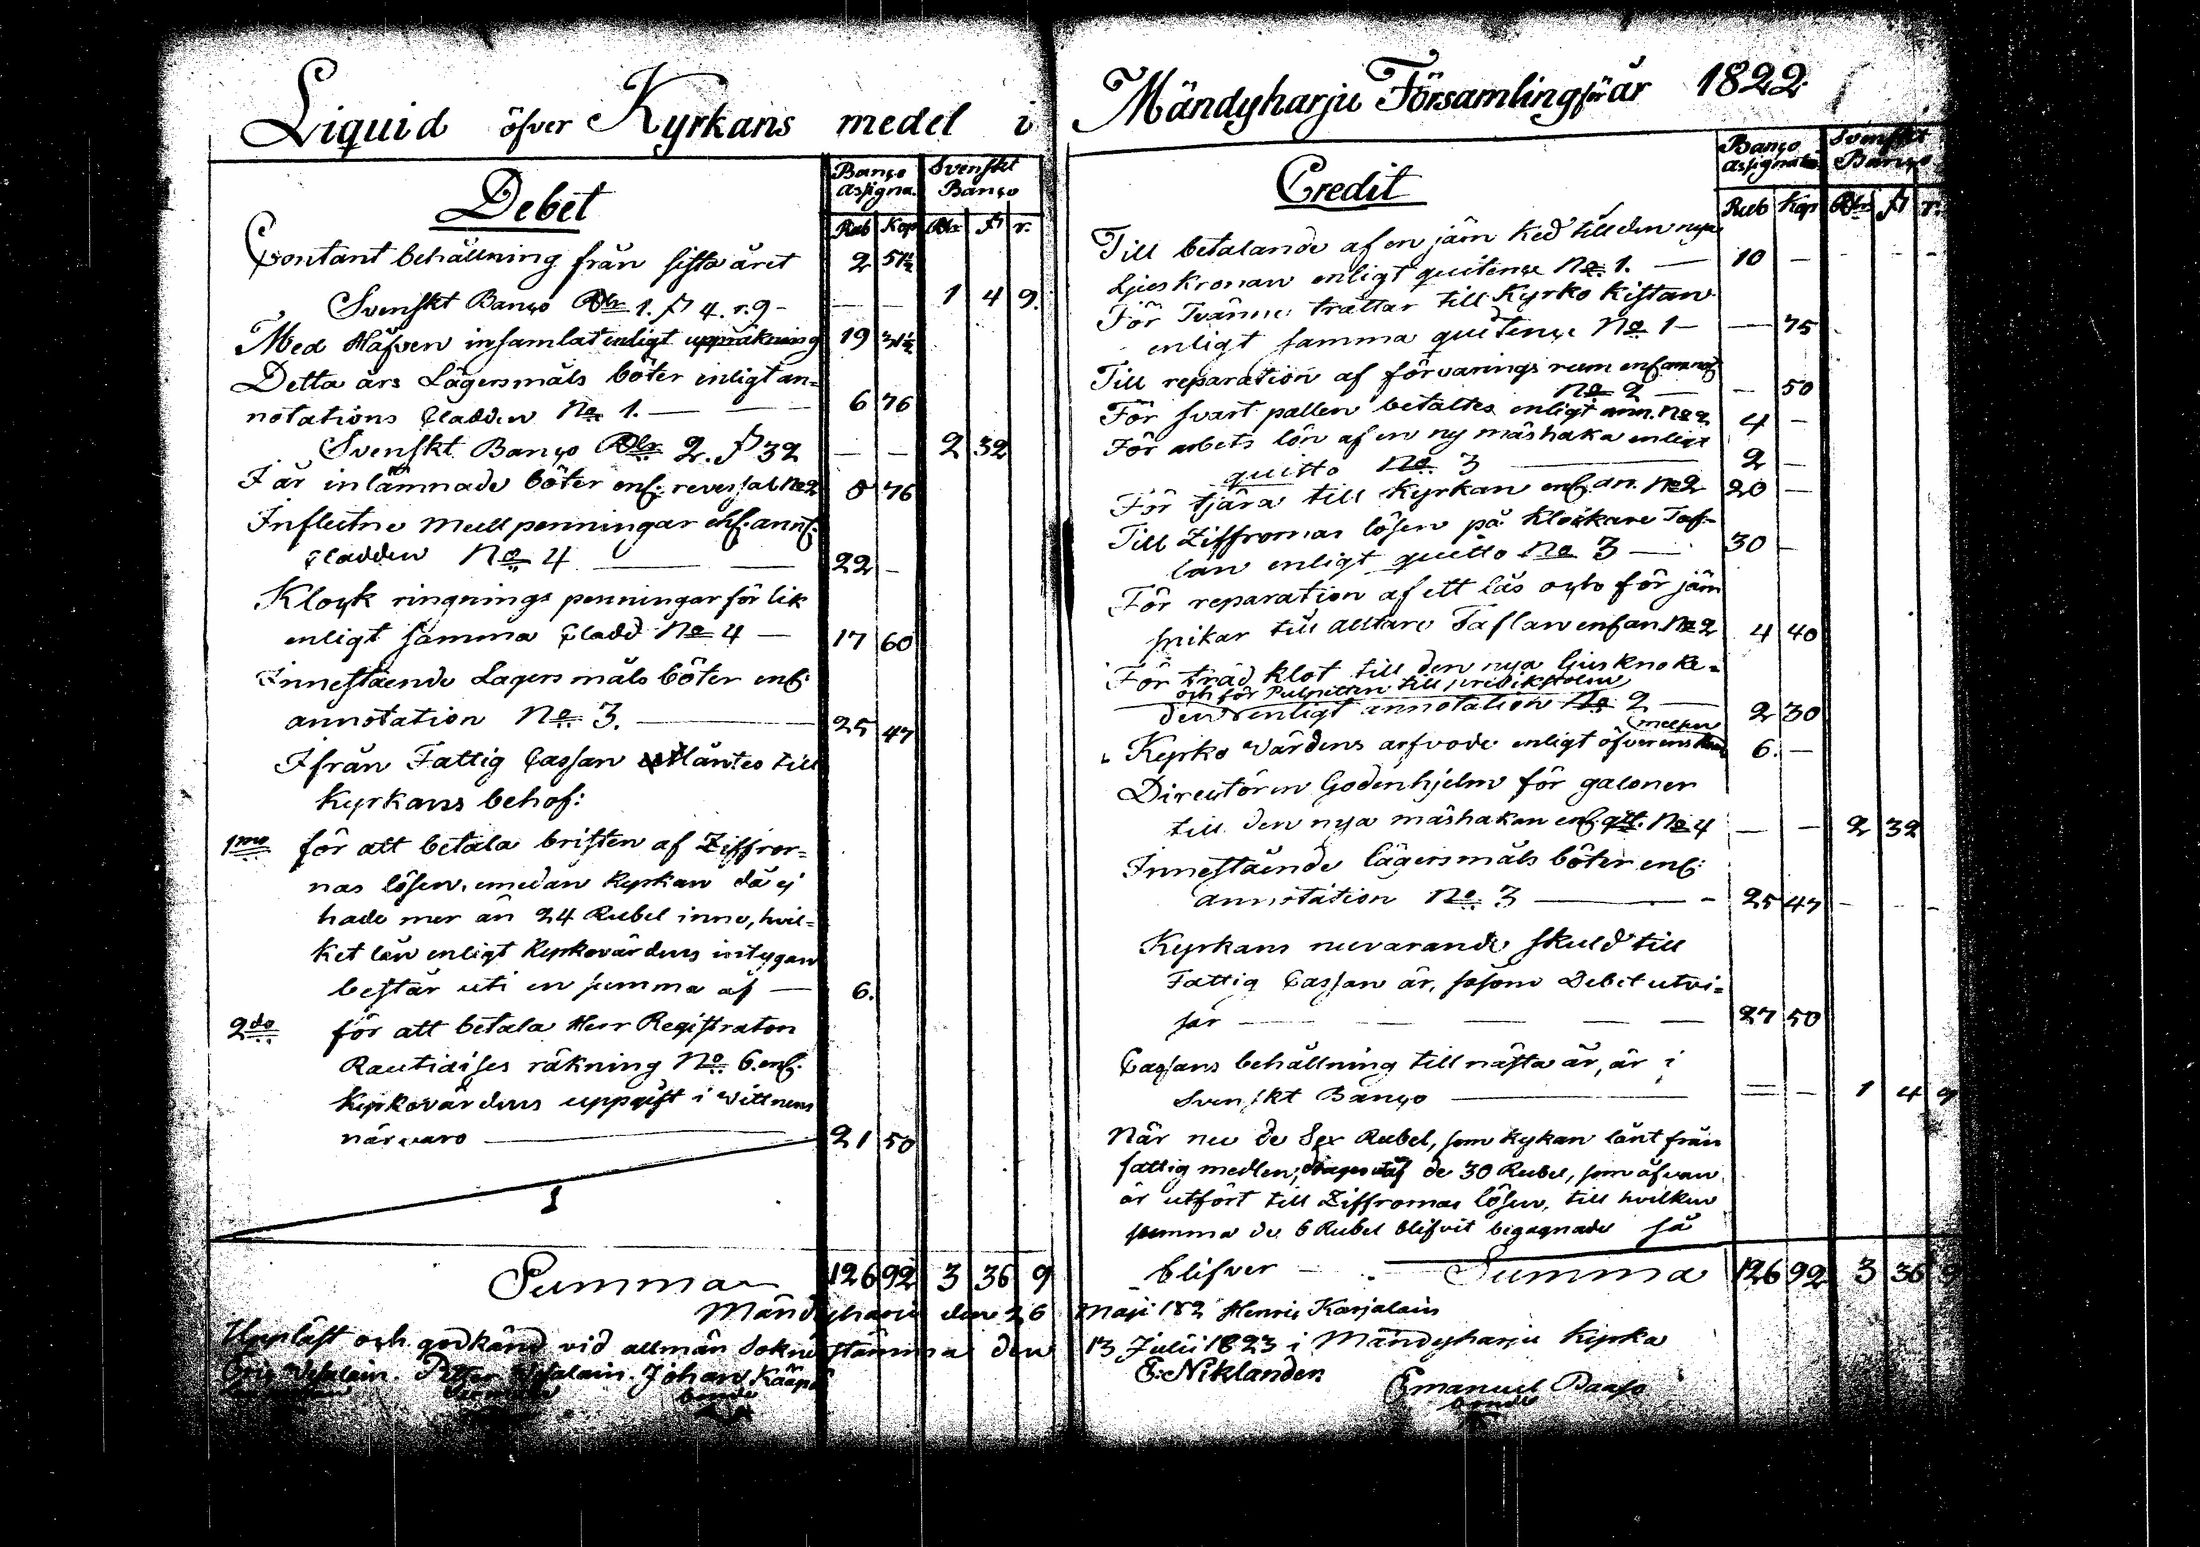 Liquid öfver Kyrkans medel i
Debet
Banço Assigna. Svenskt Banço
Rub Kop Rdr ß r.
Contant behållning från sista året 2 51½
Svenskt Banço Rdr 1. ß 4. r. 9 - — — 1 4 9.
Med Håfven insamlat enligt uppräkning 19 31½
Detta års Lägersmåls böter enligt an=
notations Cladden No 1. — — 6 76
Svenskt Banço Rdr 2. ß 32 — — 2 32
I år inlämnade böter enl: reversal No 2 5 76
Influtne Mullpenningar enl. annt:
Cladden No 4 — — 22 —
Klock ringnings penningar för lik
enligt samma Cladd No 4 — 17 60
Innestående Lagersmåls böter enl:
annotation No 3. — 25 47
Ifrån Fattig Cassan utlåntes till
Kyrkans behof:
1mo för att betala bristen af Ziffror=
nas lösen, emedan Kyrkan då ej
hade mer än 24 Rubel inne, hvil=
ket lån enligt Kyrkovärdens intygan
består uti en summa af — 6.
2do för att betala Herr Registraton
Rautiaises räkning No 6. enl.
Kyrkovärdens uppgift i Wittnens
närvaro — 21 50
Summa 126 92 3 36 9
Mändyharju den 26
Uppläst och godkänd vid allmän Sokne stämma den
Eric Vesalain. Petter Vesalain. Johan Kääpä
bonde
Mändyharju Församling för år 1822
Credit
Banço Assignat. Svenskt Banço
Rub Kop Rdr ß r.
Till betalande af en järn ked till den nya
Ljuskronan enligt quitence No 1. — 10 —
För Tvänne trattar till Kyrko Kistan
enligt samma quitence No 1 — — 75
Till reparation af förvarings rum enl annot
No 2 — — 50
För svart pallen betaltes enligt ann. No 2 4 —
För arbets lön af en ny mäshaka enligt
quitto No 3 — 2 —
För tjära till Kyrkan enl. an. No 2 20 —
Till Ziffrornas lösen på Klockare Taf=
lan enligt quitto No 3 — 30 —
För reparation af ett lås och för järn
spikar till Alltare Taflan enl an. No 2 4 40
För träd klot till den nya ljusknoke=
och för Pulpitten till predikstolen
den enligt annotation No 2 — 2 30
Kyrko Värdens arfvode enligt öfverens 6. —
Directören Godenhjelm för galoner
till den nya mäshakan enl. qtt. No 4 — — 2 32
Innestående lägersmåls böter enl:
annotation No 3 — 25 47
Kyrkans nuvarande skuld till
Fattig Cassan är, såsom Debet utvi=
sar — 27 50
Cassans behållning till nästa år, är i
Svenskt Banço — — — 1 4 9
När nu de Sex Rubel, som kykan lånt från
fattig medlen, de 30 Rubel, som äfvan
är utfört till Ziffrornas lösen, till hvilken
summa de 6 Rubel blifvit begagnade så
blifver — Summa 126 92 3 36 9
Maji 182 Henric Karjalain
13 Julii 1823 i Mändyharju Kyrka
E: Niklanden
Emanuel Paaso
bonde